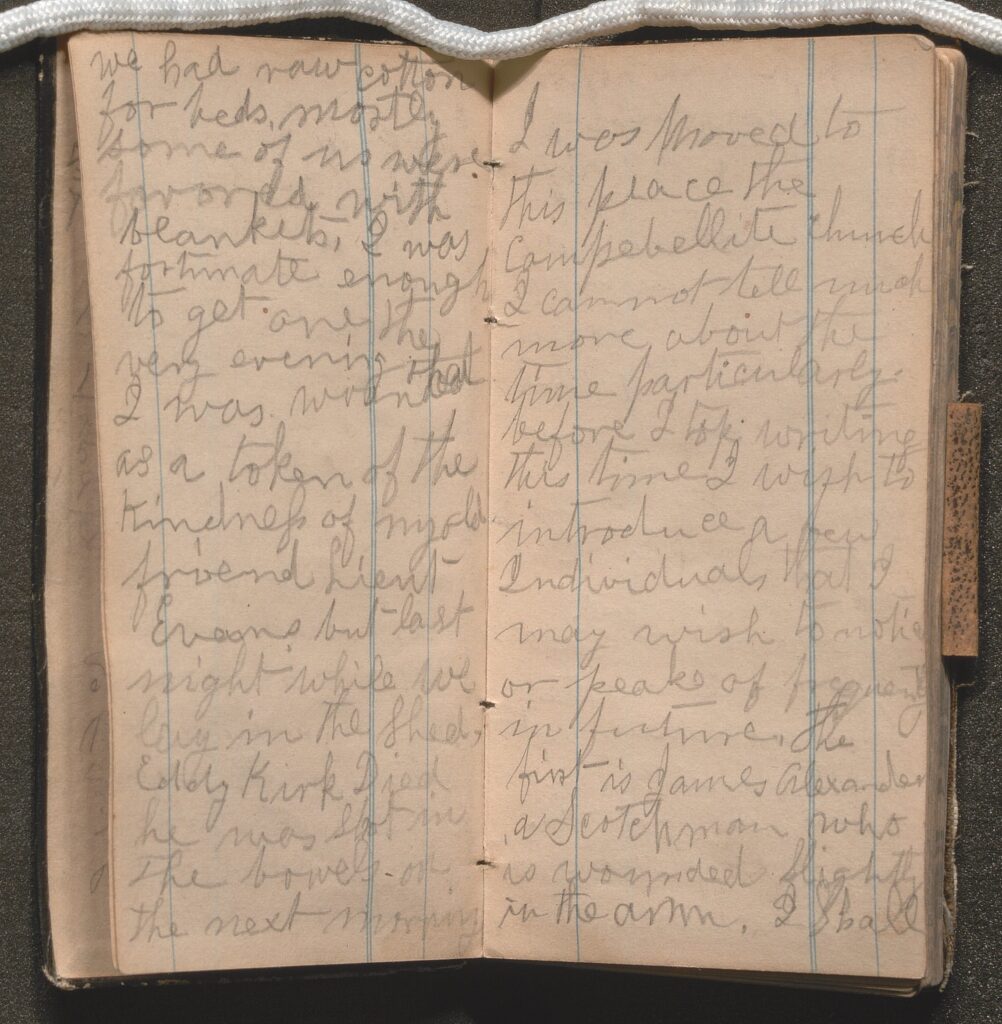 we had raw cotton
for beds, mostly,
some of us were
favord with
blankets, I was
fortunate enough
to get one the
very evening that
I was wounded
as a token of the
Kindness of my old
friend Lieut
Evans but last
night while we
lay in the shed,
Eddy Kirk Died
he was shot in
the bowels. on
the next morning
I was Moved to
this place the
Campebellite church
I cannot tell much
more about the
time particularly.
before I stop writing
this time I wish to
introduce a few
Individuals that I
may wish to notice
or speake of frequently
in future, the
first is James Alexander
a Scotchman, who
is wounded slightly
in the arm. I Shall